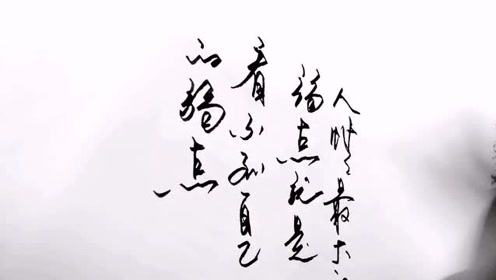 人性最大的
弱点就是
看不到自己
的弱点